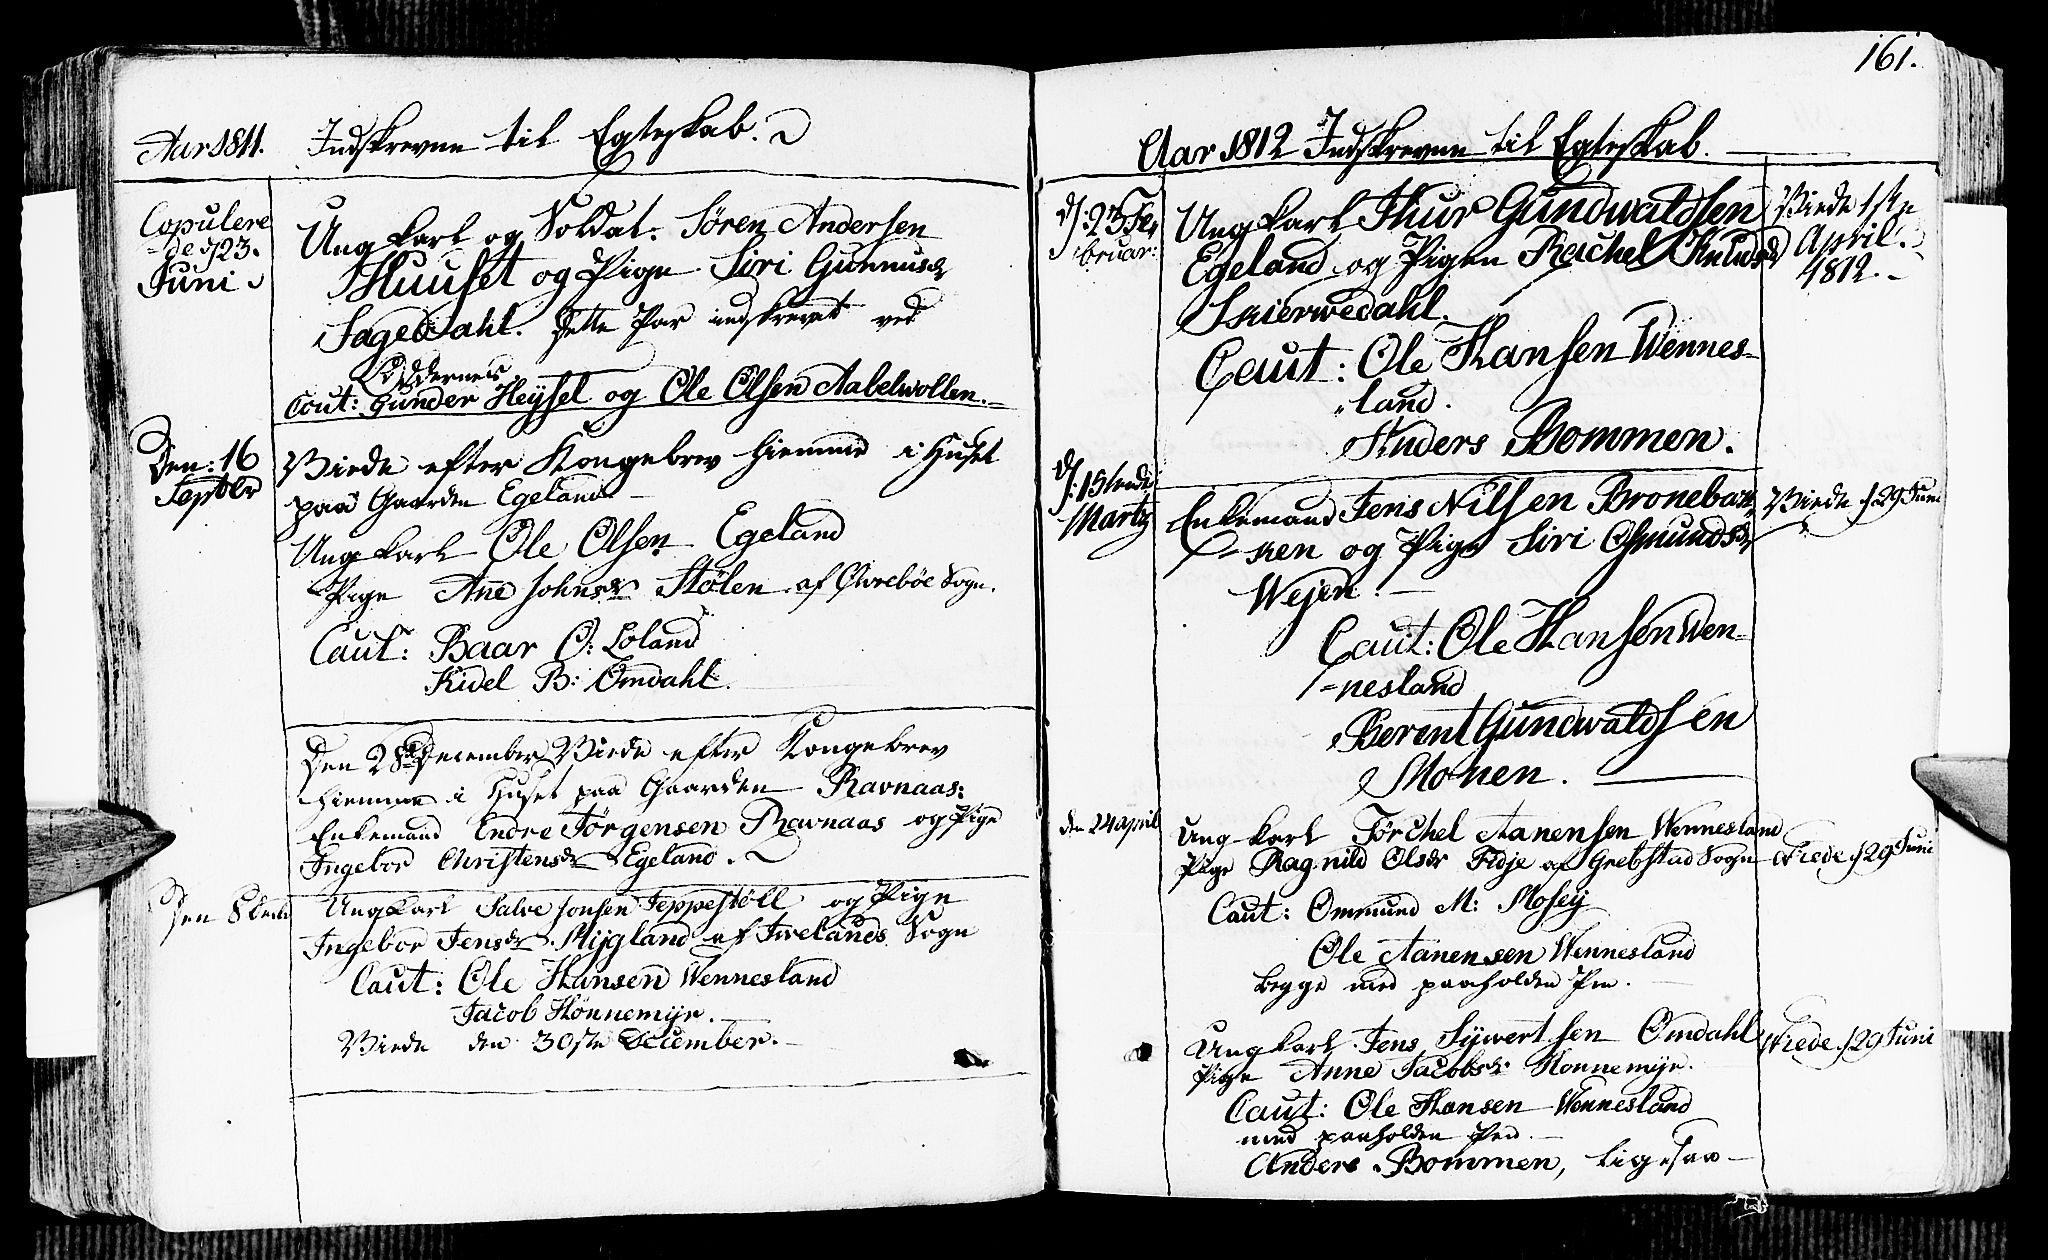 Aar 1811. Indskrevne til Egteskab.
Copulere
-de d/23.
Juni
Ung Karl og Soldat. Sören Andersen
Huuset og Pige Siri Gunnusd
Sagedahl. Dette Par indskrevet ved
Oddernes
Cout: Gunder Heysel og Ole Olsen Aabelwollen.
Den: 16
Septbr
Viede efter Kongebrev hiemme i Huset
paa Gaarden Egeland
Ung Karl Ole Olsen Egeland
Pige Ane Johnsdr Stölen af Øvreböe Sogn.
Caut: Baar O: Loland
Kidel B: Omdahl.
Den 28de December Viede efter Kongebrev
hiemme i Huset paa Gaarden Ravnaas:
Enkemand Endre Jörgensen Ravnaas og Pige
Ingebor Christensdr Egeland.
Den 8
Ung Karl Salve Jonsen Teppestöll og Pige
Ingebor Jensdr Mygland af Iwelands Sogn
Caut: Ole Hansen Wennesland
Jacob Hönnemyr.
Viede den 30ste December.
161.
Aar 1812 Indskrevne til Egteskab.
d/: 23 Fe-
bruar:
Ung Karl Thur Gundwaldsen
Egeland og Pigen Rachel Knudsd
Skierwedahl.
Caut: Ole Hansen Wennes-
land.
Anders Bommen.
Viede 1ste
April
1812.
d/: 15
Martz
Enkemand Jens Nilsen Bronebak-
ken og Pige Siri Osmundsdr
Wejen.
Caut: Ole Hansen Wen-
nesland
Berent Gundwaldsen
Monen.
Viede d/29 Juni
den 24 april
Ung Karl Törchel Aanensen Wennesland
Pige Ragnild Olsdr Fidje af Grebstad Sogn
Caut: Ommund M: Mosey
Ole Aanensen Wennesland
begge med paaholden Pen.
Wiede d/29 Juni
Ung Karl Jens Sywertsen Omdahl
Pige Anne Jacobsdr Honnemyr.
Caut: Ole Hansen Wennesland
med paaholden Pen.
Anders Bommen, ligesaa
Wiede d/29 Juni